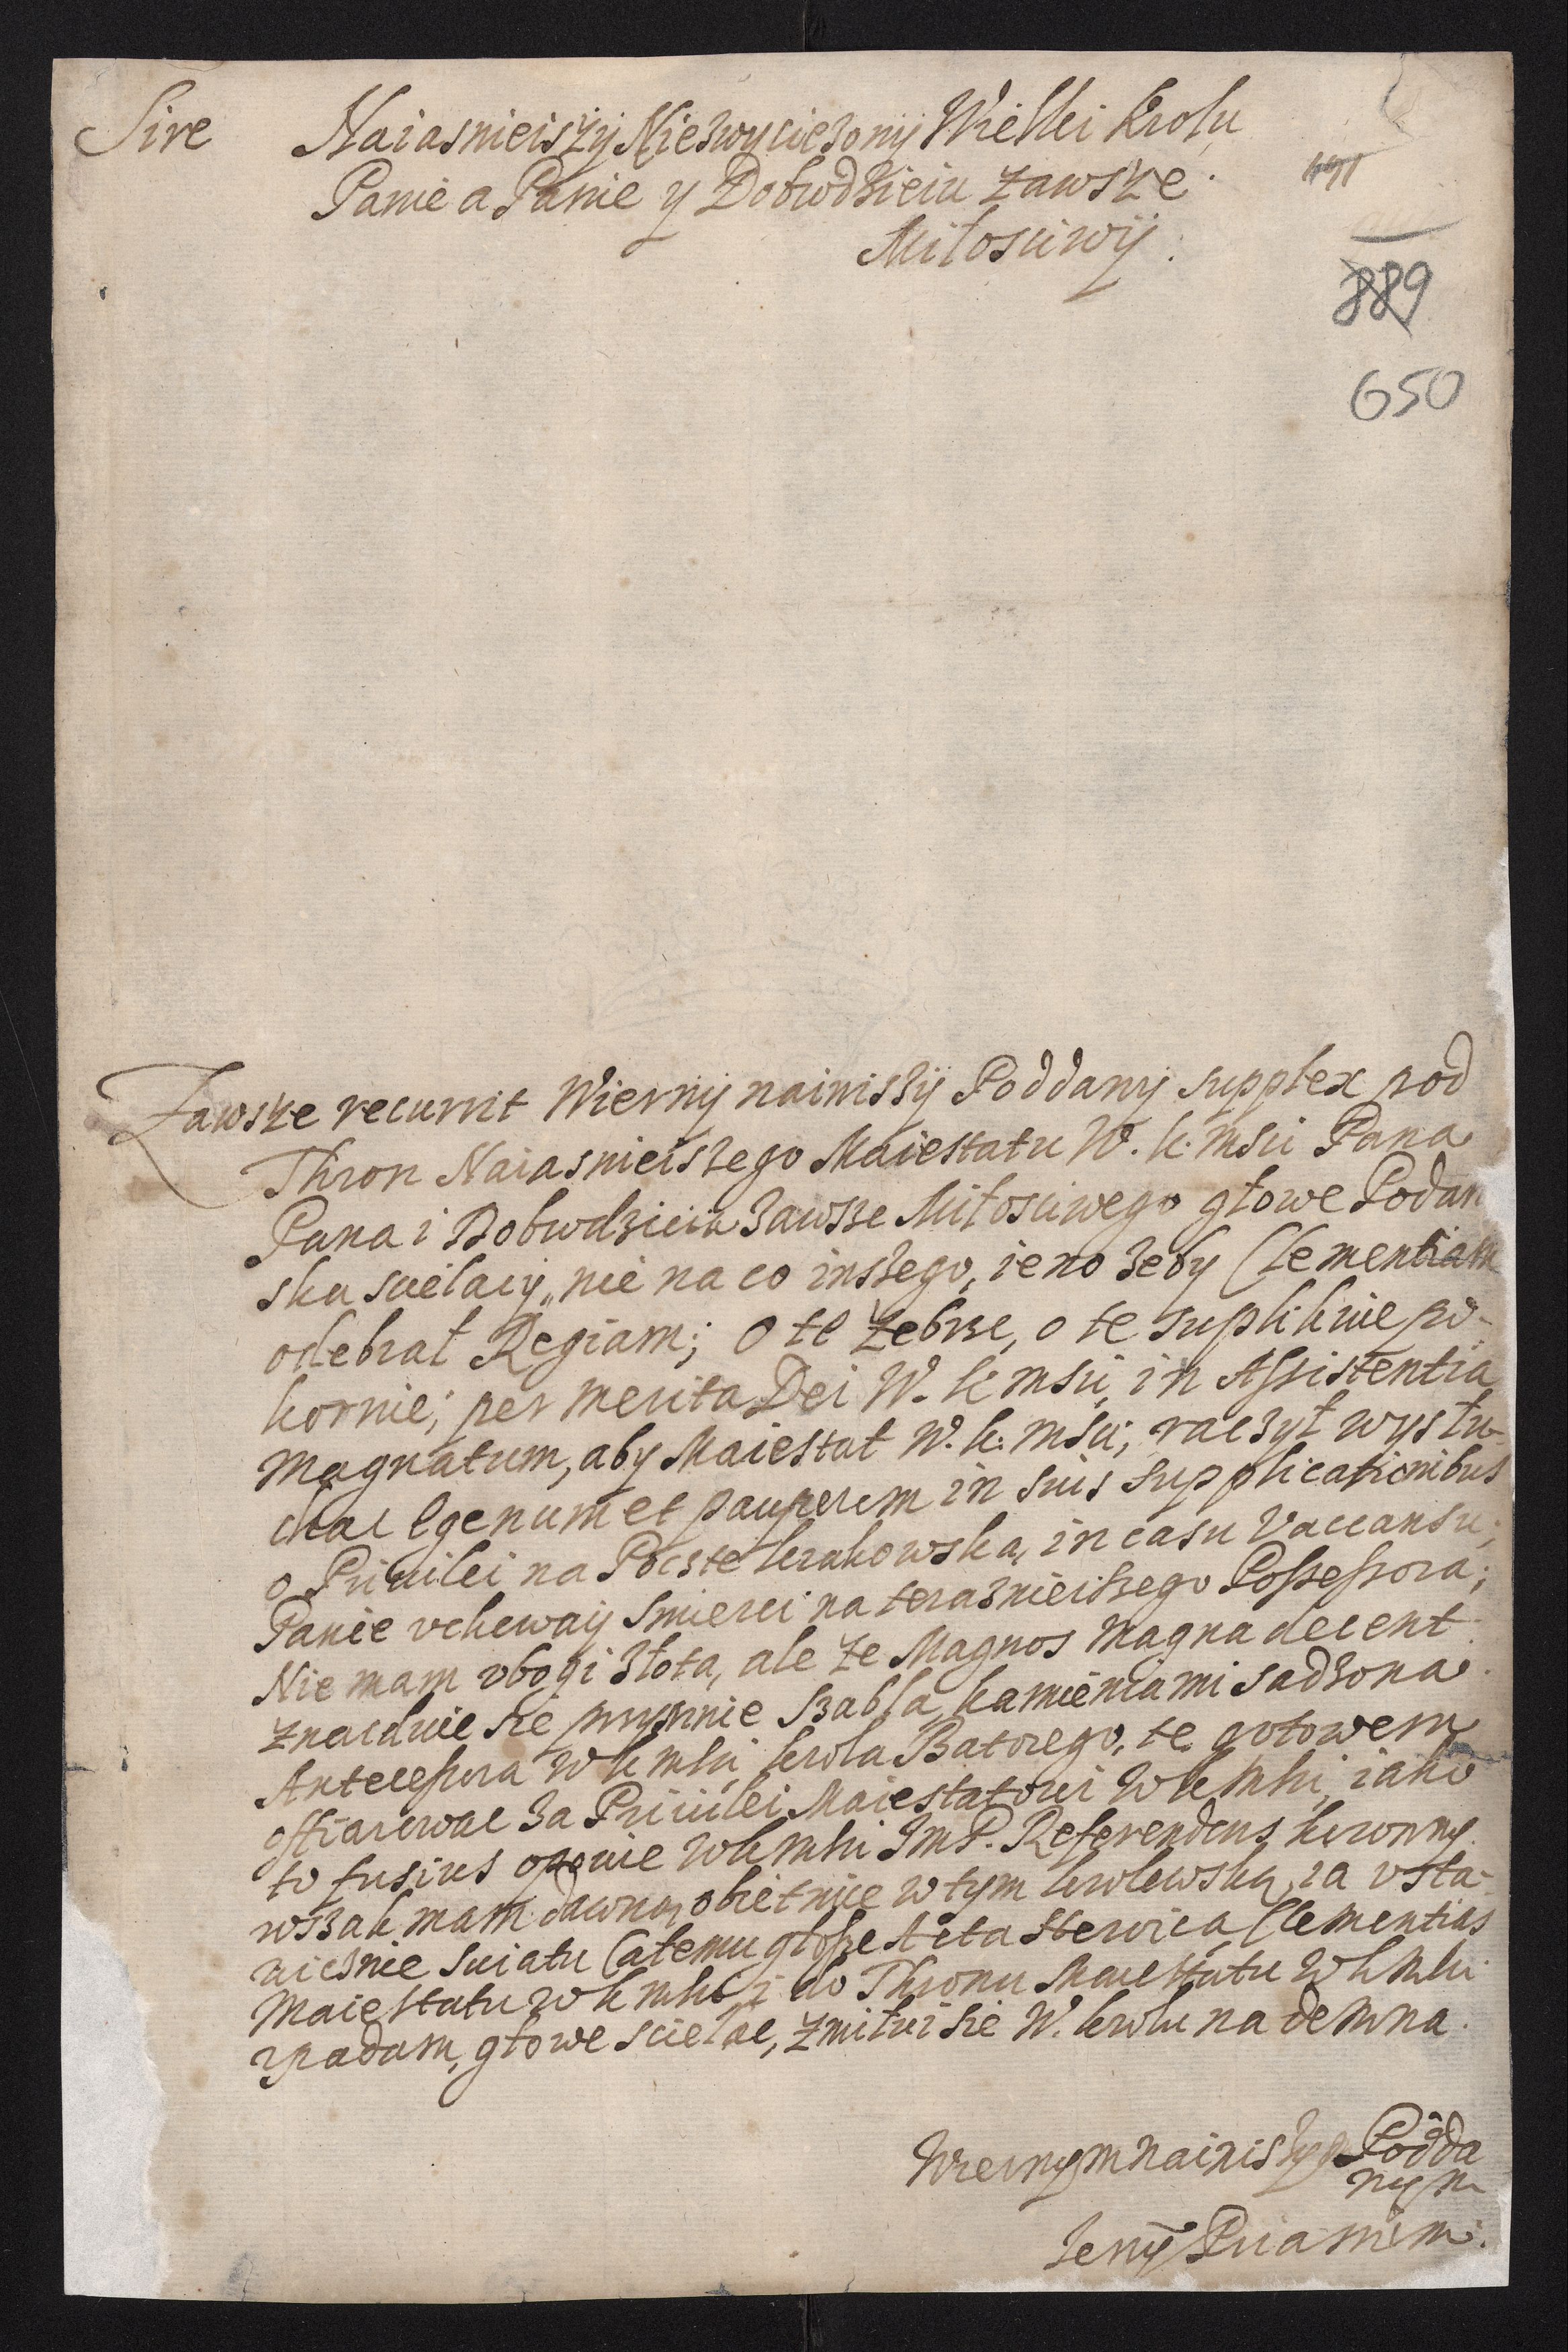 Sire Naiasnieiszÿ Niezwyciezonÿ Wielki krolu
Panie a Panie y Dobrodzieiu zawsze
Miłosciwÿ.
491
889
650
Zawsze recurrit Wiernÿ nainiszÿ Poddanÿ supplex pod
Thron Naiasnieiszego Maiestatu W. k. msci Pana
Pana i Dobrodzieia zawsze Miłosciwego głowe Podan
sku scielaiÿ, nie na co inszego, ieno zeby Clementiam
odebrał Regiam; o te zebrze, o te suplikuie po-
kornie; per merita Dei W. k msci in Assistentia
Magnatum, aby Maiestat W. k. msci, raczył wysłu-
chac Egenum et pauperem in suis supplicationibus
o Priuilei na Pocste krakowska, in casu Vaccansu;
Panie vchoway smierci na terasnieiszego Possessora;
Nie mam vbogi złota, ale ze Magnos magna decent
znaiduie sie przymnie szabla kamieniami sadzona
Antecessora W k msci krola Batorego, te gotowem
offiarowac za Priuilei Maiestatowi W k Msci, iako
to fusius opowie W k Msci JmP. Referendars koronny.
wszak mam dawno obietnice w tym krolewsku, ia vsta-
wicsnie swiatu Całemu głosze Acta Heroica Clementias
Maiestatu W k msci i do Thronu Maiestatu W k Msci
vpadam, głowe sciele, zmiłui sie W. krolu nademna.
Wiernym nainiszym Podda
nym
Jerzÿ Priamim.